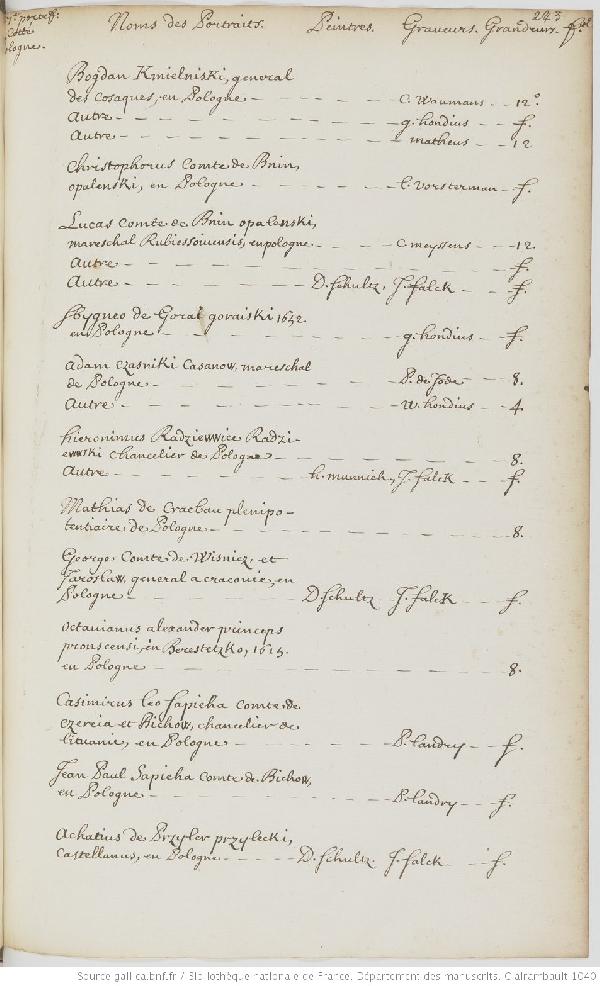 243
Noms des Portraits. Peintres. Graveurs. Grandeurs.
Cotte
ologne.
Bogdan Kmielniski, general
des Cosaques, en Pologne — C. Woumans — 12.°
Autre — g. hondius — f.
Autre — matheus — 12
Christophorus Comte de Bnin,
opalenski, en Pologne — l. vorsterman — f.
Lucas Comte de Bnin opalenski,
mareschal Rubiessouiensis, en pologne — C. meyssens — 12.
Autre — f.
Autre — D. schultz, J. falck — f.
Sbygneo de Gorai goraiski 1652.
en Pologne — g. hondius — f.
Adam Czasniki Casanow, mareschal
de Pologne — P. de Jode — 8.
Autre — W. hondius — 4.
hieronimus Radziewwice Radzi-
ewski chancelier de Pologne — 8.
Autre — h. munnich, J. falck — f.
Mathias de Cracbau plenipo-
tentiaire de Pologne — 8.
George Comte de Wisnicz, et
Jaroslaw, general a cracovie, en
Pologne — D. schultz J. falck — f.
Octavianus alexander princeps
pronscensi, in Berestetzko, 1615.
en Pologne — 8.
Casimirus leo sapieha Comte de
czereia et Bichow, chancelier de
lituanie, en Pologne — P. landry — f.
Jean Paul Sapieha Comte de Bichow,
en Pologne — P. landry — f.
Achatius de Przyler przylecki,
Castellanus, en Pologne — D. schultz. J. falck — f.
Source gallica.bnf.fr / Bibliothèque nationale de France. Département des manuscrits. Clairambault 1040